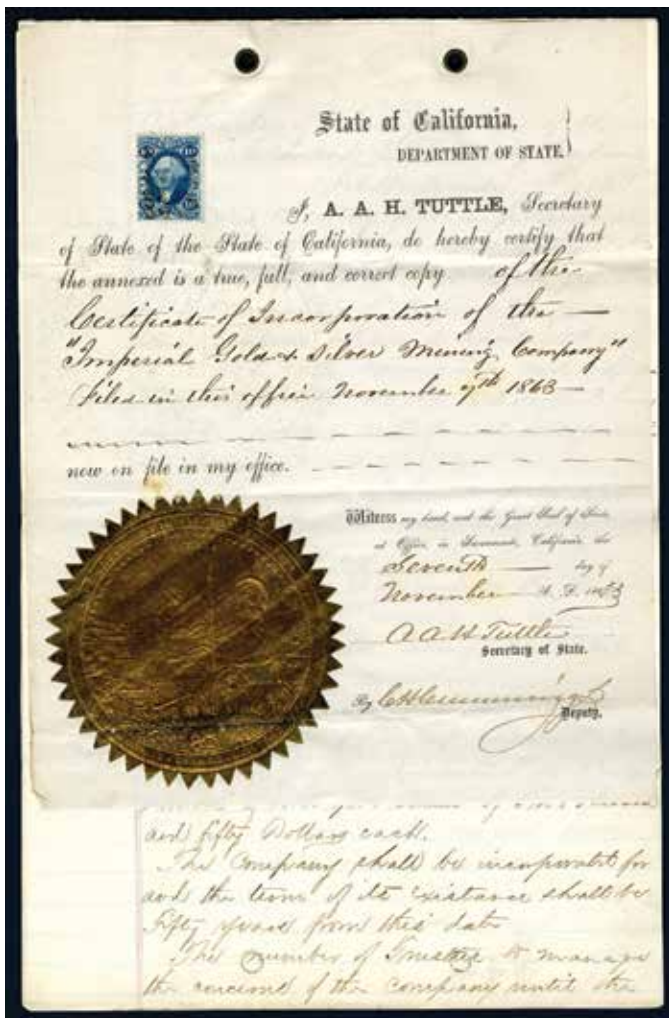 State of California,
DEPARTMENT OF STATE.
I, A. A. H. TUTTLE, Secretary
of State of the State of California, do hereby certify that
the annexed is a true, full, and correct copy of the
Certificate of Incorporation of the
"Imperial Gold & Silver Mining Company"
Filed in this office November 7th 1863
now on file in my office.
Witness my hand, and the Great Seal of State,
at Office, in Sacramento, California, the
Seventh day of
November A. D. 1863
A A H Tuttle
Secretary of State.
By
Deputy.
and fifty Dollars each.
The Company shall be incorporated for
and the term of its existance shall be
Fifty years from this date
The number of Trustees to manage
the concerns of the Company until the